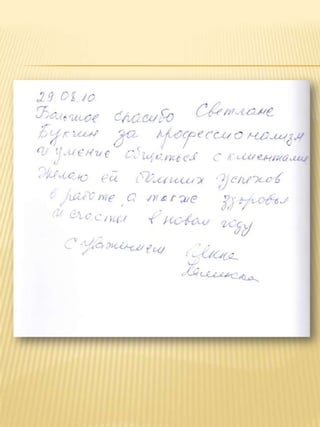 29.08.10
Большое спасибо Светлане
Букчин за профессионализм
и умение общаться с клиентами
Желаю ей больших успехов
в работе, а также здоровья
и счастья в новом году
С уважением Инна